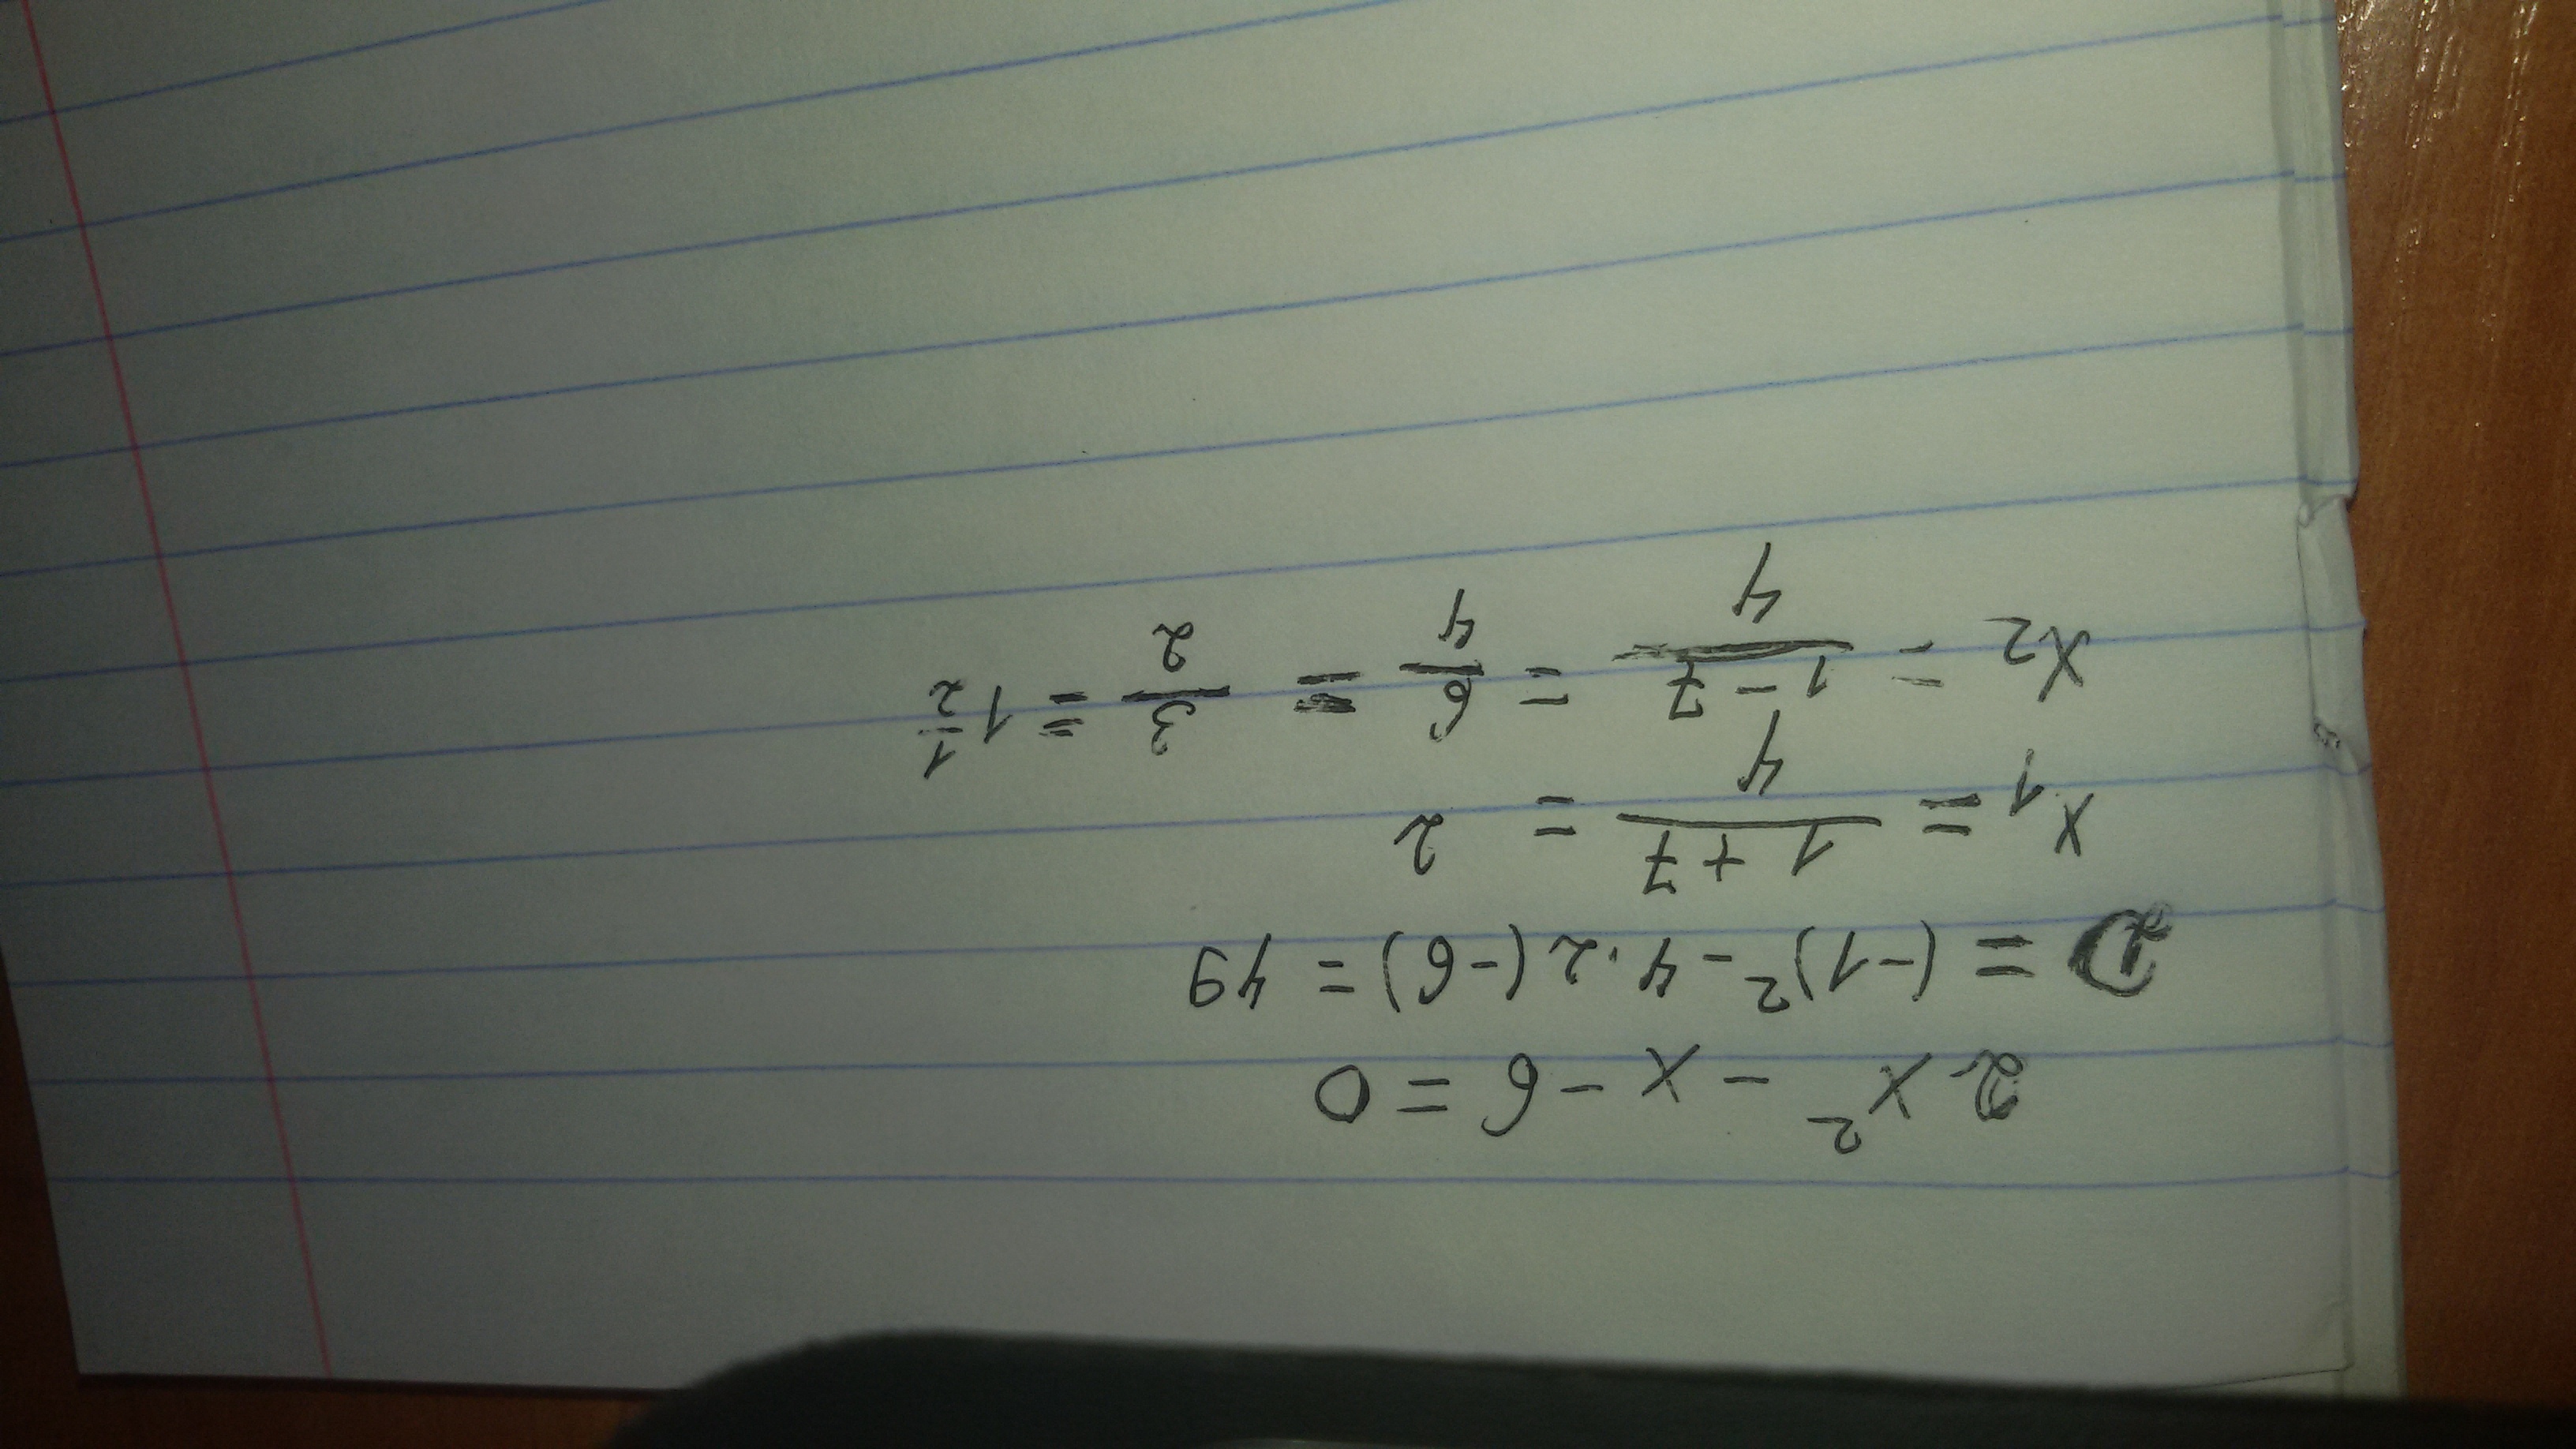 2x² - x - 6 = 0
D = (-1)² - 4·2(-6) = 49
x1 = (1 + 7)/4 = 2
x2 = (1 - 7)/4 = 6/4 = 3/2 = 1 1/2